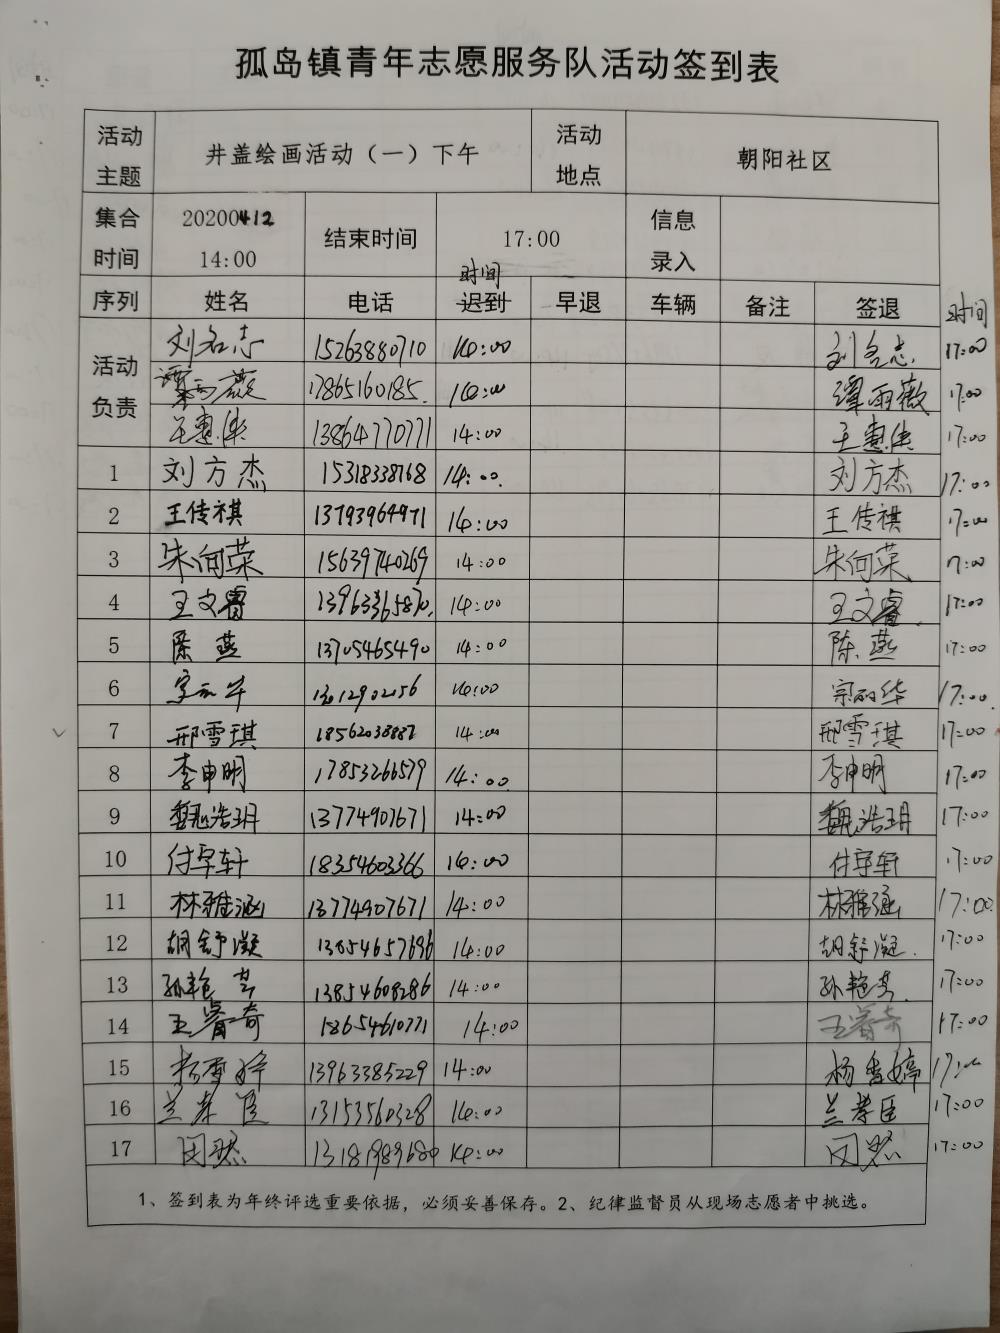 孤岛镇青年志愿服务队活动签到表
活动主题 井盖绘画活动（一）下午 活动地点 朝阳社区
集合时间 20200412 14:00 结束时间 17:00 信息录入
时间
序列 姓名 电话 迟到 早退 车辆 备注 签退 时间
活动负责 刘名志 15263880710 14:00 刘名志 17:00
谭雨薇 17865160185 14:00 谭雨薇 17:00
王惠集 13864770771 14:00 王惠 17:00
1 刘方杰 15318338768 14:00 刘方杰 17:00
2 王传祺 13793964971 14:00 王传祺 17:00
3 朱向荣 15639740269 14:00 朱向荣 17:00
4 王文睿 13963365870 14:00 王文睿 17:00
5 陈燕 13705465490 14:00 陈燕 17:00
6 14:00 宗丽华 17:00
7 邢雪琪 18562038887 14:00 邢雪琪 17:00
8 李申明 17853266579 14:00 李申明 17:00
9 魏浩玥 13774907671 14:00 魏浩玥 17:00
10 付宇轩 18354603366 14:00 付宇轩 17:00
11 林雅涵 13774907671 14:00 林雅涵 17:00
12 胡舒凝 13854657696 14:00 胡舒凝 17:00
13 孙艳芳 13854608286 14:00 孙艳芳 17:00
14 王睿奇 18654610771 14:00 王睿奇 17:00
15 杨雪婷 13963385229 14:00 杨雪婷 17:00
16 兰孝臣 13153560328 14:00 兰孝臣 17:00
17 闵然 13181989680 14:00 闵然 17:00
1、签到表为年终评选重要依据，必须妥善保存。2、纪律监督员从现场志愿者中挑选。